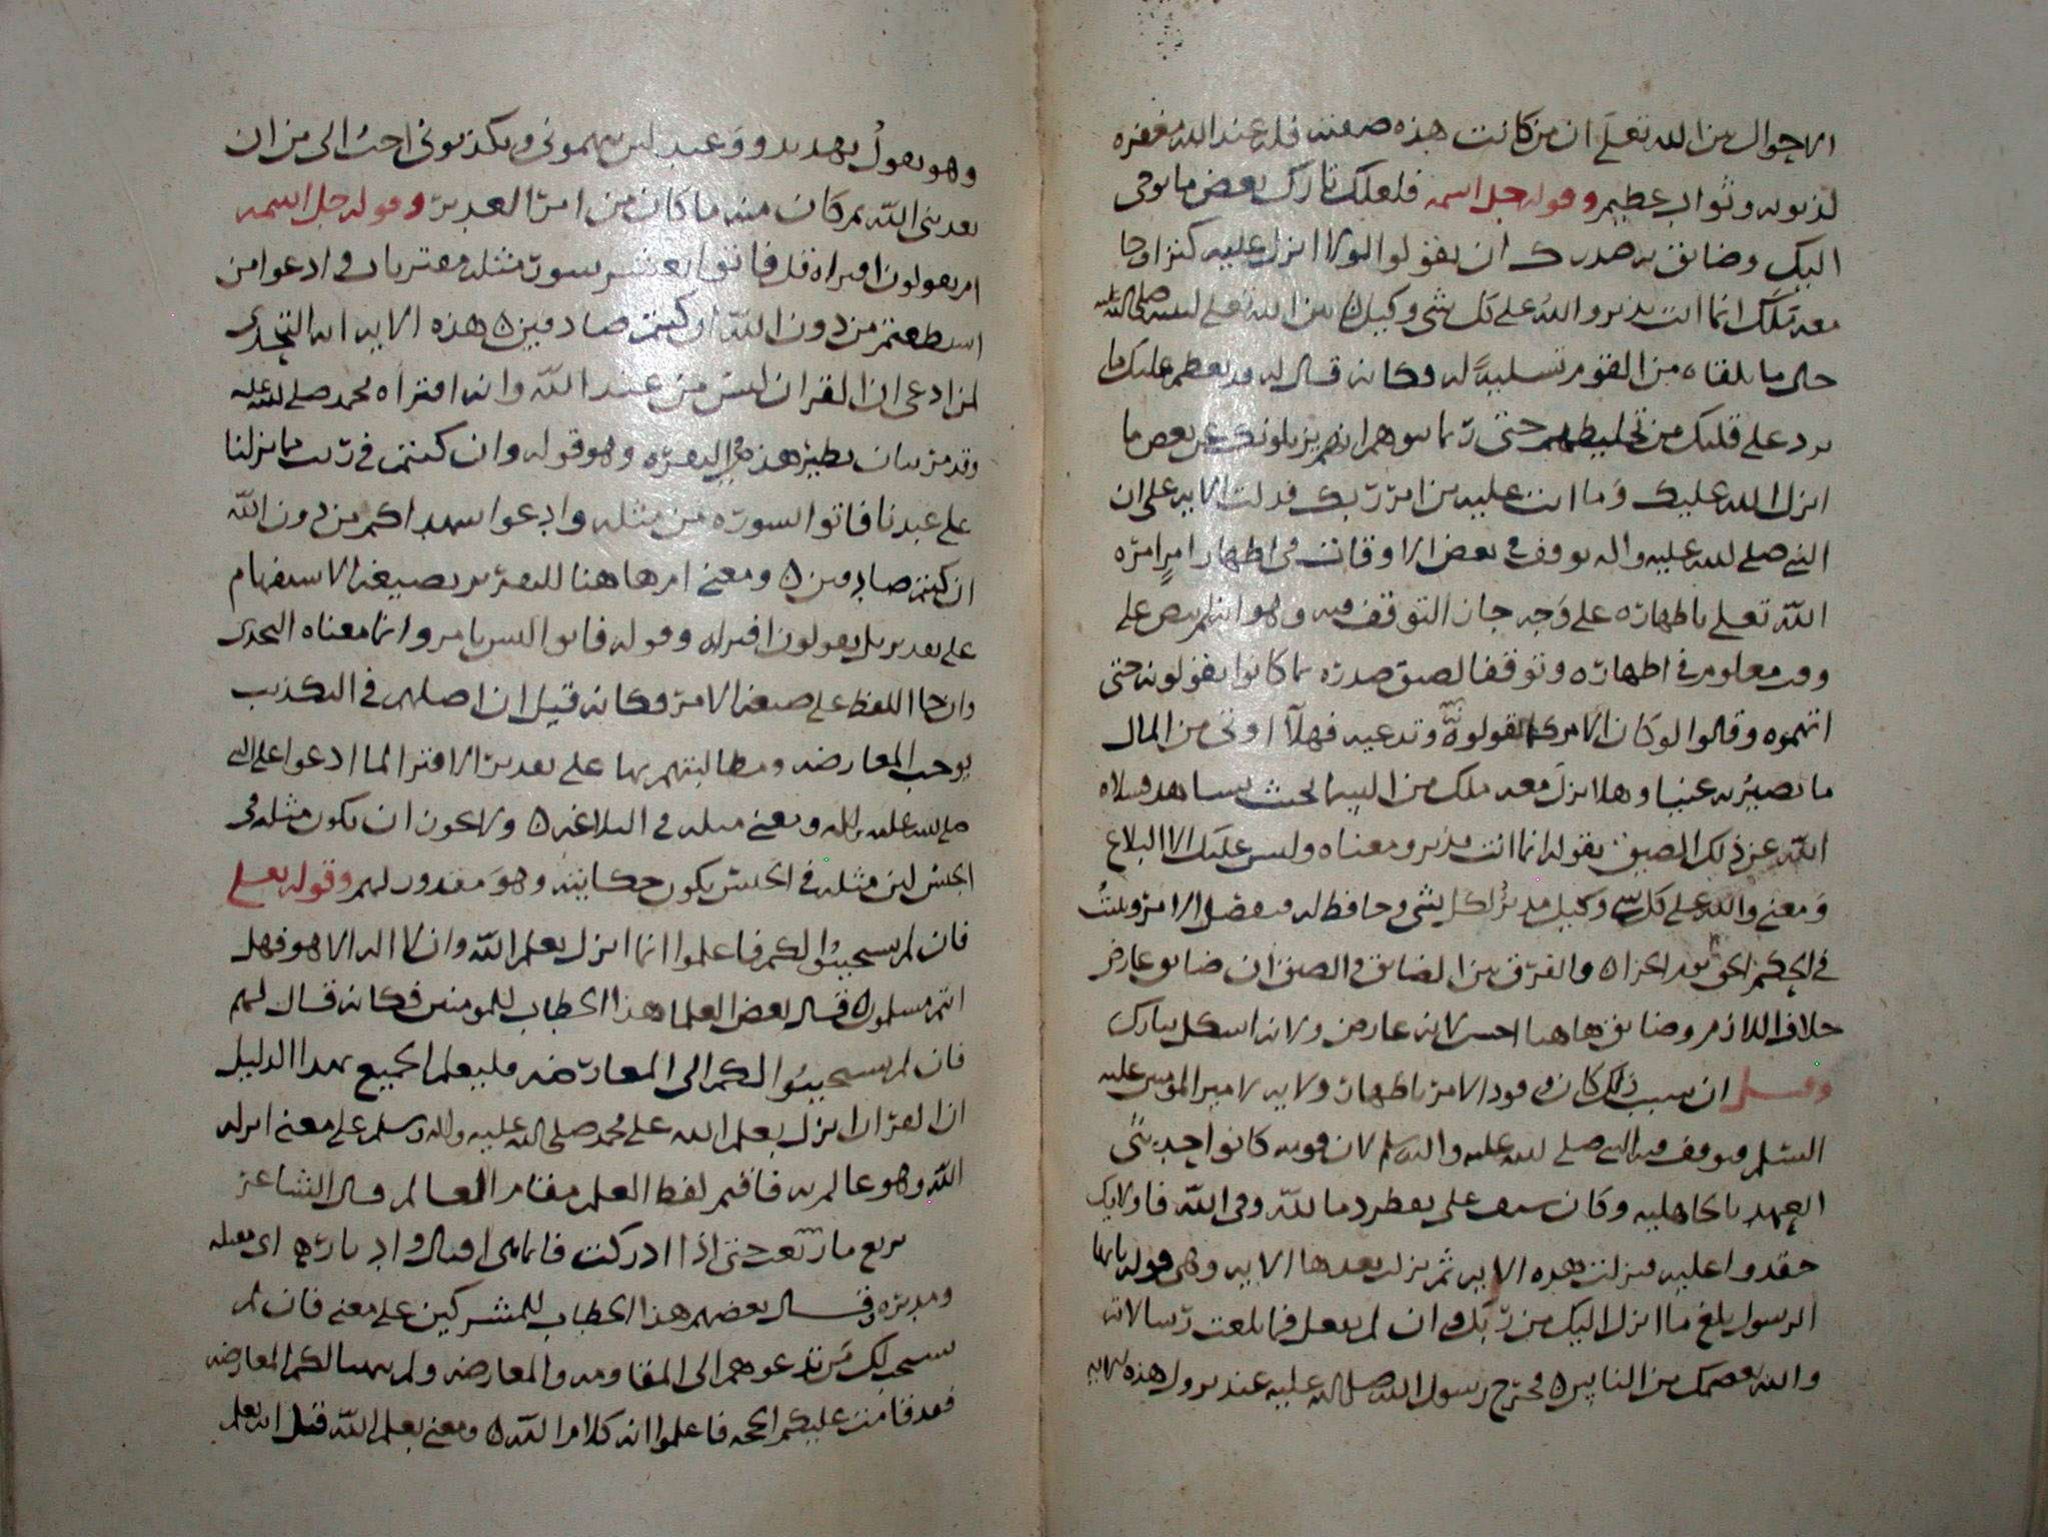 الاحوال بين الله تعلى ان من كانت هذه صفته فله عند الله مغفره
لذنوبه وثواب عظيم وقوله جل اسمه فلعلك تارك بعض ما يوحى
اليك وضائق به صدرك ان يقولوا لولا انزل عليه كنز او جا
معه ملك انما انت نذير والله على كل شى وكيل بين الله تعلى لنبيه صلى الله عليه
حال ما يلقاه من القوم تسلية له وكانه قال له قد يعظم عليك ما
يرد على قلبك من تخليطهم حتى ربما توهم انهم يزيلونك عن بعض ما
انزل الله عليك وما انت عليه من امر ربك فدلت الايه على ان
النبي صلى الله عليه واله توقف فى بعض الاوقات فى اظهار امر امره
الله تعلى باظهاره على وجه جاز التوقف فيه وهو انه لم ينص على
وقت معلوم فى اظهاره وتوقفا لضيق صدره بما كانوا يقولونه حتى
اتهموه وقالوا لو كان الامر كما تقولونه وتدعيه فهلا اوتى من المال
ما يصير به غنيا وهلا انزل معه ملك من السما بحيث يشاهد فسلاه
الله عن ذلك الضيق بقوله انما انت نذير ومعناه وليس عليك الا البلاغ
ومعنى والله على كل شى وكيل مدبر لكل شى وحافظ له
فى الحكم الحق بعد الجزاه والفرق بين الضائق والضيق ان ضائق عارض
خلاف اللازم وضائق هاهنا احسن لانه عارض ولانه اشكل بتارك
وقيل ان سبب ذلك كان ورود الامر باظهار ولايه لامير المومنين عليه
السلم فتوقف فيه النبي صلى الله عليه واله وسلم لان قومه كانوا حديثى
العهد بالجاهليه وكان سيف على يقطر دما لله وفى الله فاولايك
حقدوا عليه فنزلت هذه الايه ثم نزلت بعدها الايه وهى قوله يايها
الرسول بلغ ما انزل اليك من ربك وان لم تفعل فما بلغت رسالاته
والله يعصمك من الناس فخرج رسول الله صلى الله عليه عند نزول هذه الايه
وهو يقول تهديد ووعيد لئن يتهمونى ويكذبونى احب الى من ان
يعذبنى الله ثم كان منه ما كان من امر الغدير وقوله جل اسمه
ام يقولون افتراه قل فاتوا بعشر سور مثله مفتريات وادعوا من
استطعتم من دون الله ان كنتم صادقين هذه الايه ايه التحدى
لمن ادعى ان القران ليس من عند الله وانه افتراه محمد صلى الله عليه
وقد مر بيان نظير هذه فى البقره وهو قوله وان كنتم فى ريب مما نزلنا
على عبدنا فاتوا بسوره من مثله وادعوا شهداكم من دون الله
ان كنتم صادقين ومعنى ام هاهنا للتقرير بصيغه الاستفهام
على تقدير بل يقولون افتراه وقوله فاتوا ليس بامر وانما معناه التحدى
وان جا اللفظ على صيغه الامر فكانه قيل ان اصلهم فى التكذيب
يوجب المعارضه ومطالبتهم بها على تقدير الافترا لما ادعوا على النبي
صلى الله عليه واله ومعنى مثله فى البلاغه ولا يجوز ان يكون مثله فى
الجنس لان مثله فى الجنس يكون حكايته وهو مقدور لهم وقوله تعلى
فان لم يستجيبوا لكم فاعلموا انما انزل بعلم الله وان لا اله الا هو فهل
انتم مسلمون قال بعض العلما هذا الخطاب للمومنين فكانه قال لهم
فان لم يستجيبوا لكم الى المعارضه فليعلم الجميع بهذا الدليل
ان القران انزل بعلم الله على محمد صلى الله عليه واله وسلم على معنى انزله
الله وهو عالم به فاقيم لفظ العلم مقام العالم قال الشاعر
ترتع ما رتعت حتى اذا ادركت فانما هى اقبال وادبار اى مقبله
ومدبره وقال بعضهم هذا الخطاب للمشركين على معنى فان لم
يستجب لكم من تدعوهم الى المقاومه والمعارضه ولم يتهيا لكم المعارضه
فقد قامت عليكم الحجه فاعلموا انه كلام الله ومعنى بعلم الله قيل انه بعلم